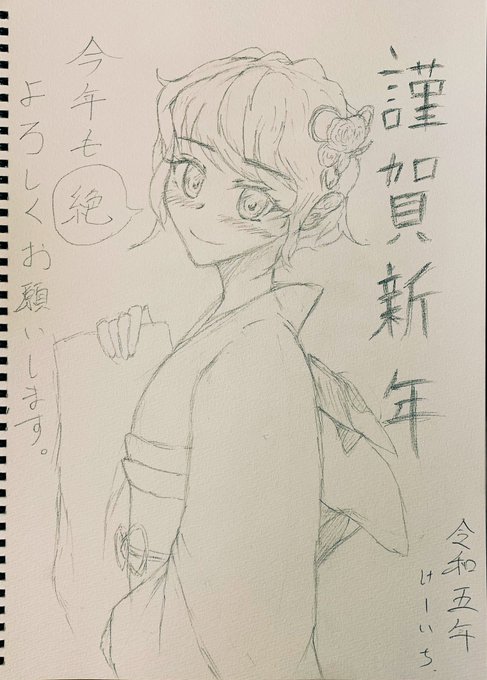 謹賀新年
今年も
よろしくお願いします。
絶
令和五年
けーいち